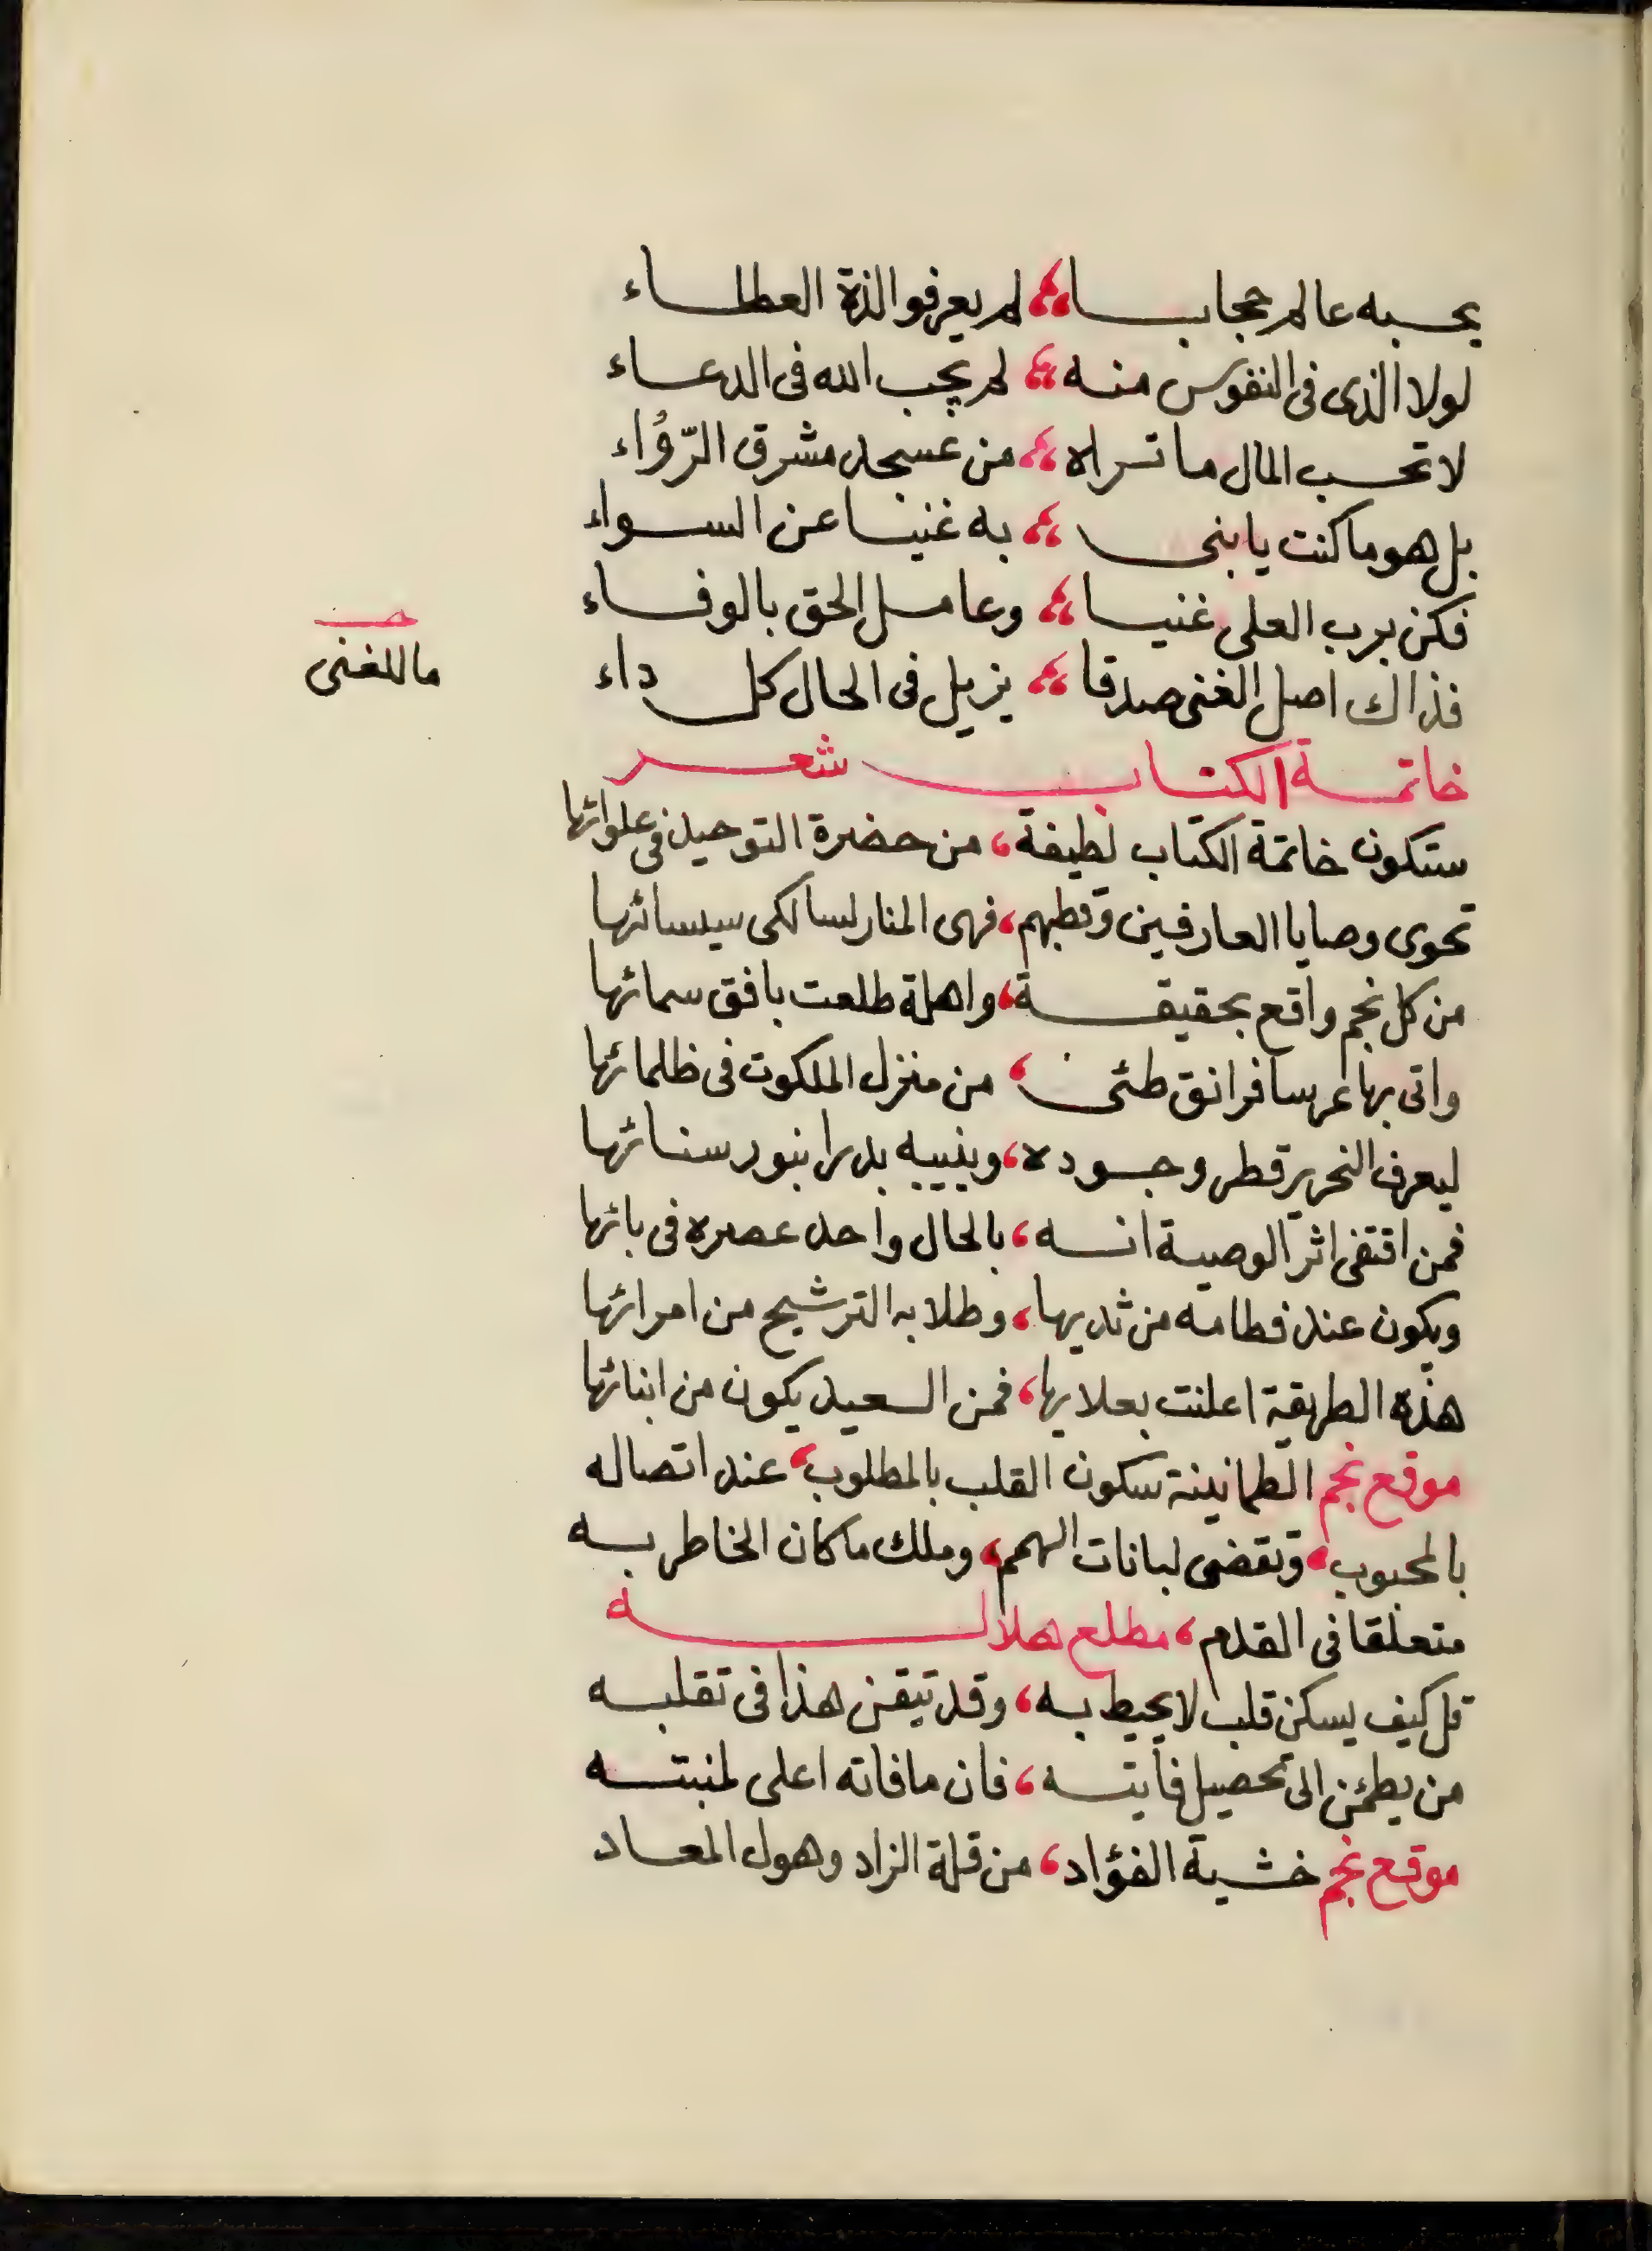 يحسبه عالم حجابا، لم يعرفوا لذة العطاء
لولا الذى فى النفوس منه، لم يجب الله فى الدعاء
لا تحسب المال ما تراه، من عسجد مشرق الرّؤاء
بل هو ما كنت يا بنى، به غنيا عن السواء
فكن برب العلى غنيا، وعامل الحق بالوفاء
فذاك اصل الغنى صدقا، يزيل فى الحال كل داء
ما للغنى
خاتمة الكتاب شعر
ستكون خاتمة الكتاب لطيفة، من حضرة التوحيد فى علوائها
تحوى وصايا العارفين وقطبهم، فهى المنار لسالكى سيسائها
من كل نجم واقع بحقيقة، واهلة طلعت بافق سمائها
واتى بها عرسا فرانق طئى، من منزل الملكوت فى ظلمائها
ليعرف النحرير قطر وجوده، وينبيه بدرا بنور سنائها
فمن اقتفى اثر الوصية انه، بالحال واحد عصره فى بائها
ويكون عند فطامه من ثديها، وطلابه الترشيح من امرائها
هذه الطريقة اعلنت بعلايها، فمن السعيد يكون من ابنائها
موقع نجم الطمانينة سكون القلب بالمطلوب، عند اتصاله
بالمحبوب، وتقضى لبانات الهمم، وملك ما كان الخاطر به
متعلقا فى القدم، مطلع هلاله
قل كيف يسكن قلب لا يحيط به، وقد تيقن هذا فى تقلبه
من يطمئن الى تحصيل فايته، فان ما فاته اعلى لمنيته
موقع نجم خشية الفؤاد، من قلة الزاد وهول المعاد